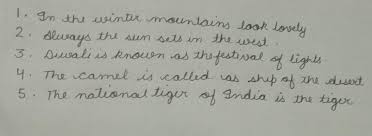 1. In the winter mountains look lovely
2. Always the sun sets in the west.
3. Diwali is known as the festival of lights
4. The camel is called as ship of the desert
5. The national tiger of India is the tiger